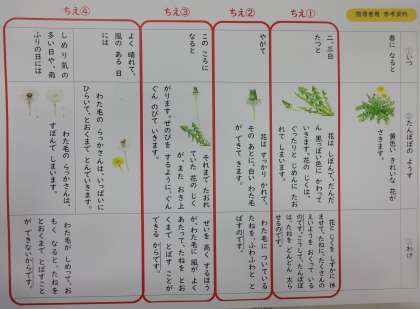 指導者用 参考資料
ちえ①
ちえ②
ちえ③
ちえ④
①いつ
②たんぽぽのようす
③わけ
春に なると
黄色い きれいな 花が
さきます。
二、三日
たつと
花は しぼんで、だんだ
ん 黒っぽい色に かわって
いきます。花の じくは、
ぐったりと じめんに たお
れて しまいます。
花と じくを しずかに 休
ませて、たねに、たくさんの
えいようを おくって いる
のです。こうして、たんぽぽ
は、たねを どんどん 太ら
せるのです。
やがて
花は すっかり かれて、
その あとに、白い わた毛
が できて きます。
わた毛に ついている
たねを、ふわふわと と
ばすのです。
この ころに
なると
それまで たおれ
て いた 花の じく
が、また おき上
がります。せのびを するように、ぐん
ぐん のびて いきます。
せいを 高く するほう
が、わた毛に 風が よく
あたって、たねを とお
くまで とばす ことが
できる からです。
よく 晴れて、
風の ある 日
には
わた毛の らっかさんは、いっぱいに
ひらいて、とおくまで とんで いきます。
しめり気の
多い 日や、雨
ふりの 日には
わた毛の らっかさんは、
すぼんで しまいます。
わた毛が しめって、お
もく なると、たねを
とおくまで とばすこと
が できないからです。